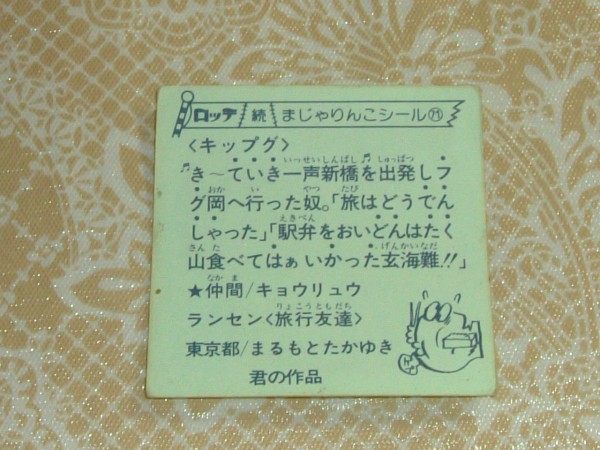 ロッテ 続 まじゃりんこシール 71
〈キップグ〉
♬き〜ていき一声新橋を♬出発しフ
グ岡へ行った奴。「旅はどうでん
しゃった」「駅弁をおいどんはたく
山食べてはぁいかった玄海難!!」
★仲間/キョウリュウ
ランセン〈旅行友達〉
東京都/まるもとたかゆき
君の作品